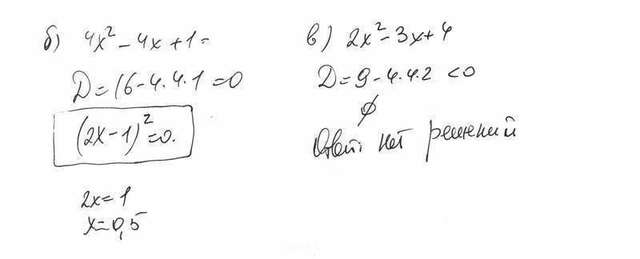 б) 4x² - 4x + 1 =
D = 16 - 4.4.1 = 0
(2x - 1)² = 0.
2x = 1
x = 0,5
в) 2x² - 3x + 4
D = 9 - 4.4.2 < 0
∅
Ответ: нет решений